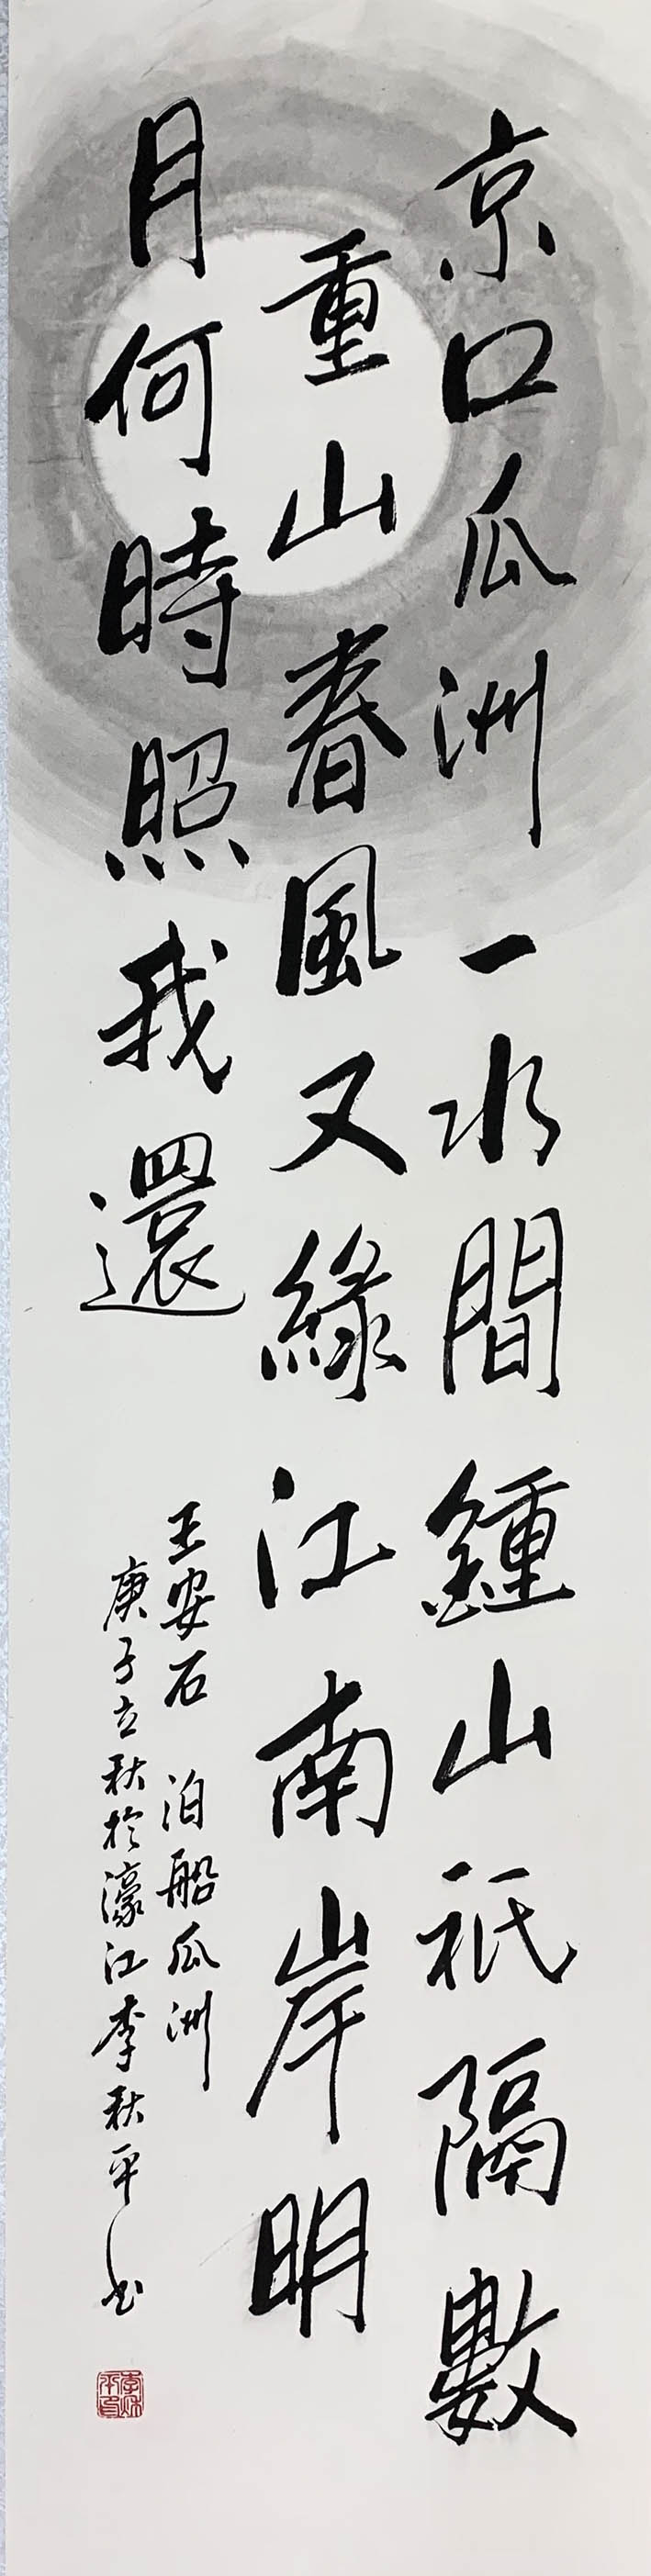 京口瓜洲一水間鍾山祇隔數
重山春風又緑江南岸明
月何時照我還
王安石 泊船瓜洲
庚子立秋於濠江李秋平书